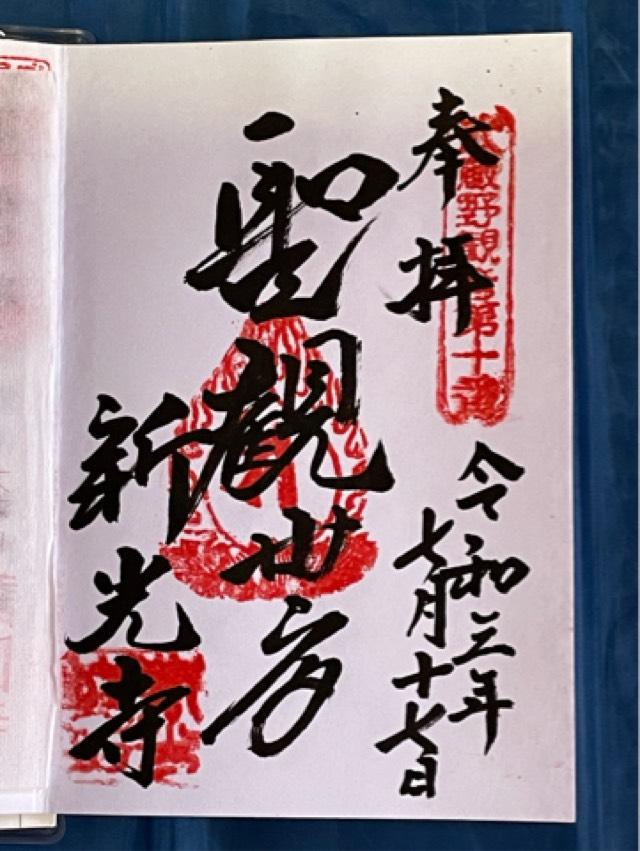 奉拝
蔵野観音第十
令和三年
七月十七日
聖観世音
新光寺